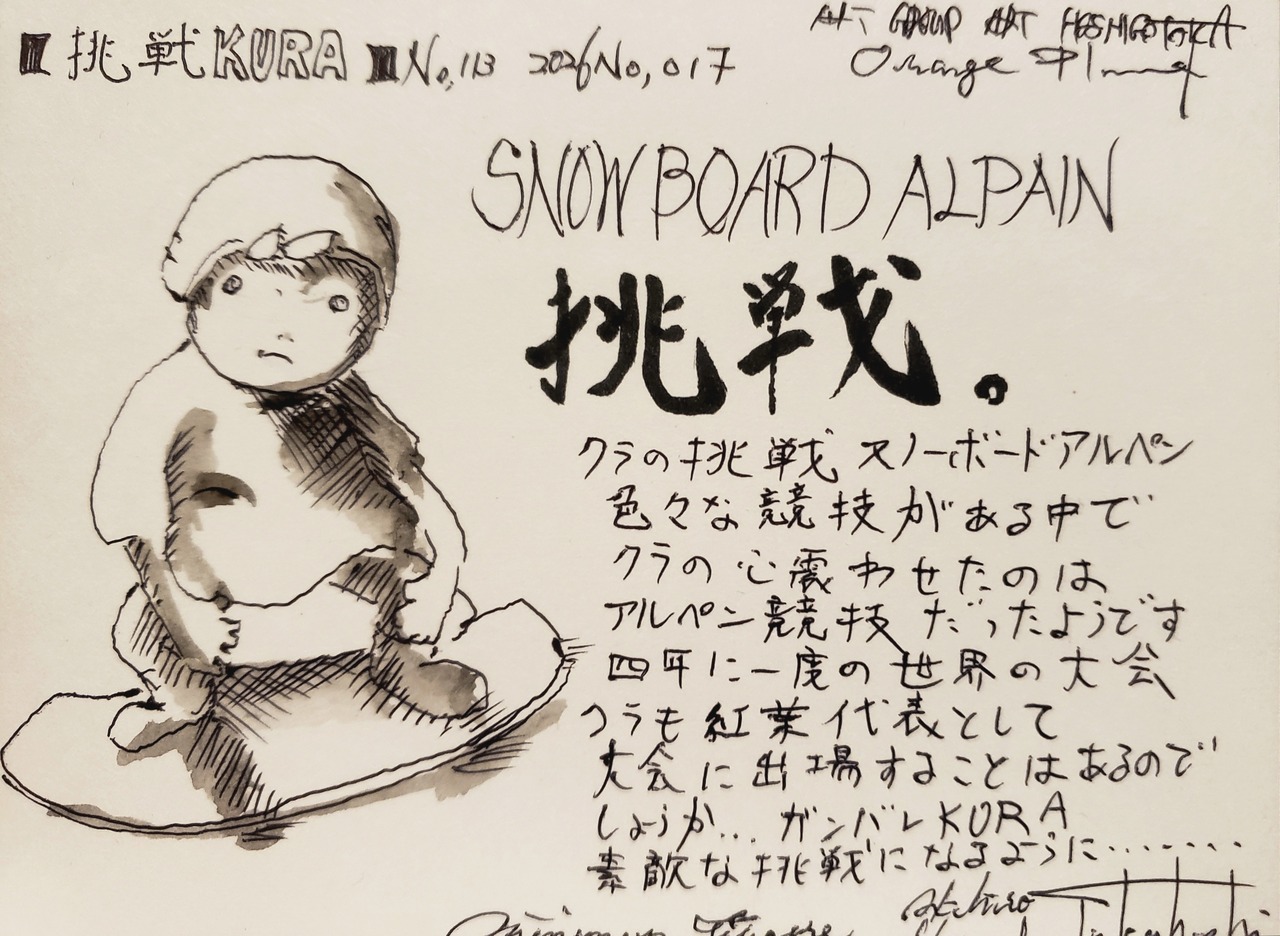 挑戦KURA No,113 2026No,017
ART GROUP ART HOSHIGOTOKA
Orange Planet
SNOWBOARD ALPAIN
挑戦。
クラの挑戦 スノーボードアルペン
色々な競技がある中で
クラの心震わせたのは
アルペン競技だったようです
四年に一度の世界の大会
クラも紅葉代表として
大会に出場することはあるので
しょうか... ガンバレKURA
素敵な挑戦になるように........